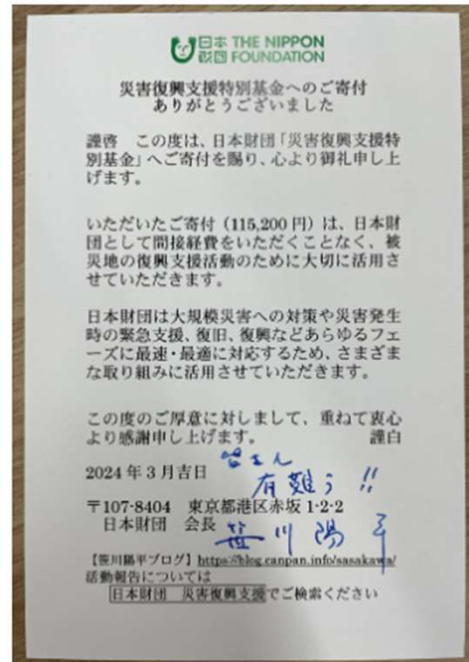 日本財団 THE NIPPON FOUNDATION
災害復興支援特別基金へのご寄付
ありがとうございました
謹啓　この度は、日本財団「災害復興支援特
別基金」へご寄付を賜り、心より御礼申し上
げます。
いただいたご寄付（115,200 円）は、日本財
団として間接経費をいただくことなく、被
災地の復興支援活動のために大切に活用さ
せていただきます。
日本財団は大規模災害への対策や災害発生
時の緊急支援、復旧、復興などあらゆるフェ
ーズに最速・最適に対応するため、さまざま
な取り組みに活用させていただきます。
この度のご厚意に対しまして、重ねて衷心
より感謝申し上げます。　謹白
皆さん
有難う!!
2024 年 3 月吉日
〒107-8404　東京都港区赤坂 1-2-2
日本財団　会長 笹川陽平
【笹川陽平ブログ】https://blog.canpan.info/sasakawa/
活動報告については
日本財団　災害復興支援でご検索ください